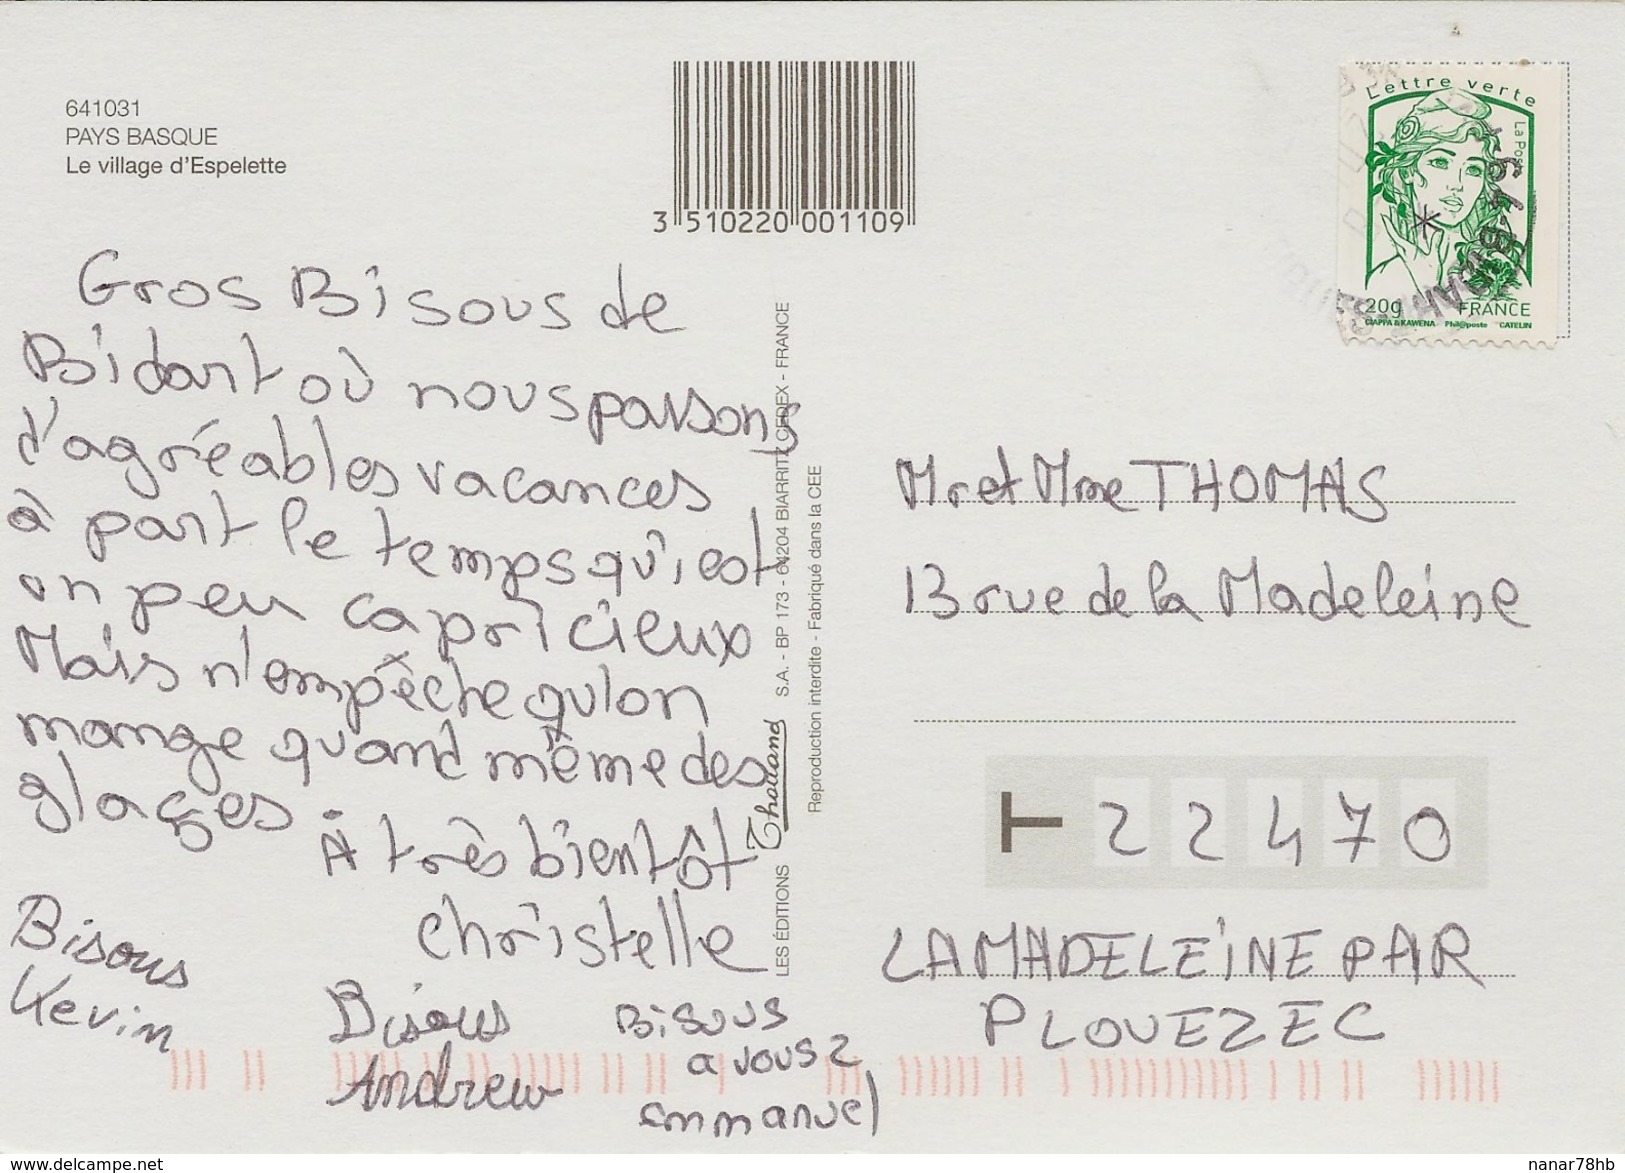 641031
PAYS BASQUE
Le village d'Espelette
3 510220 001109
Lettre verte
La Poste
20g FRANCE
CIAPPA & KAWENA Phil@poste CATELIN
Gros Bisous de
Bidart où nous passons
d'agréables vacances
à part le temps qui est
un peu capricieux
Mais n'empêche qu'on
mange quand même des
glaces
À très bientôt
Christelle
Bisous
Kevin
Bisous
Andrew
Bisous
a vous 2
emmanuel
LES ÉDITIONS Thouand S.A. - BP 173 - 64204 BIARRITZ CEDEX - FRANCE
Reproduction interdite - Fabriqué dans la CEE
Mr et Mme THOMAS
13 rue de la Madeleine
22470
LA MADELEINE PAR
PLOUEZEC
nanar78hb